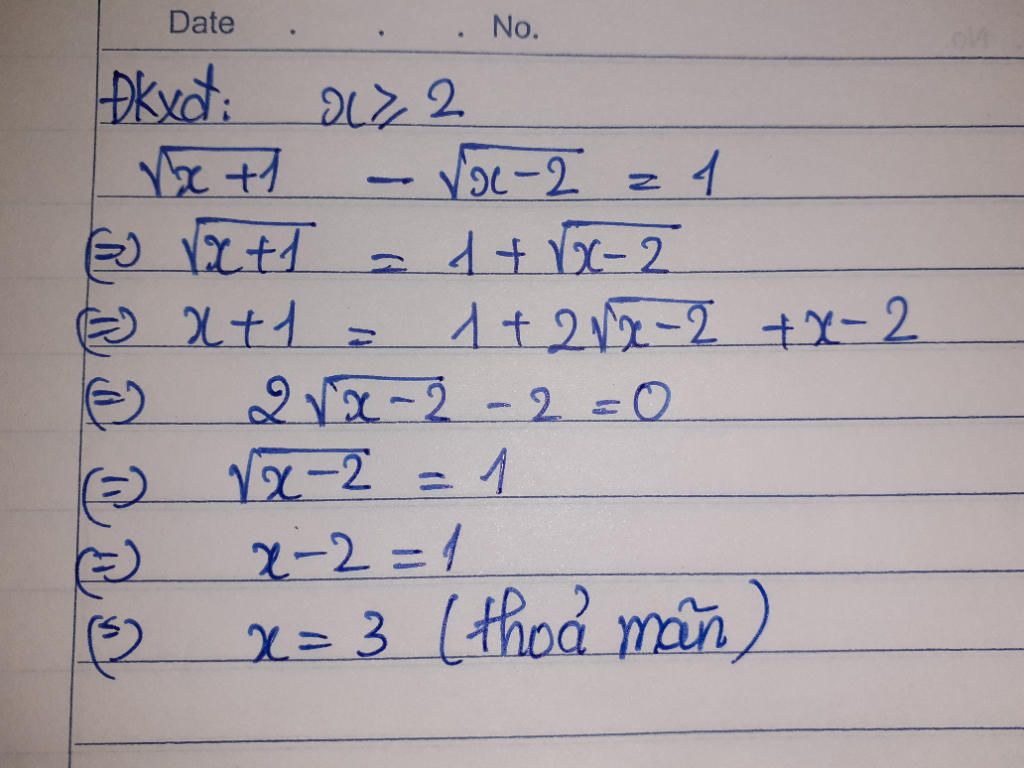 Date . . . No.
Đkxđ: x ≥ 2
√(x+1) - √(x-2) = 1
(=) √(x+1) = 1 + √(x-2)
(=) x+1 = 1 + 2√(x-2) + x - 2
(=) 2√(x-2) - 2 = 0
(=) √(x-2) = 1
(=) x-2 = 1
(=) x = 3 (thoả mãn)